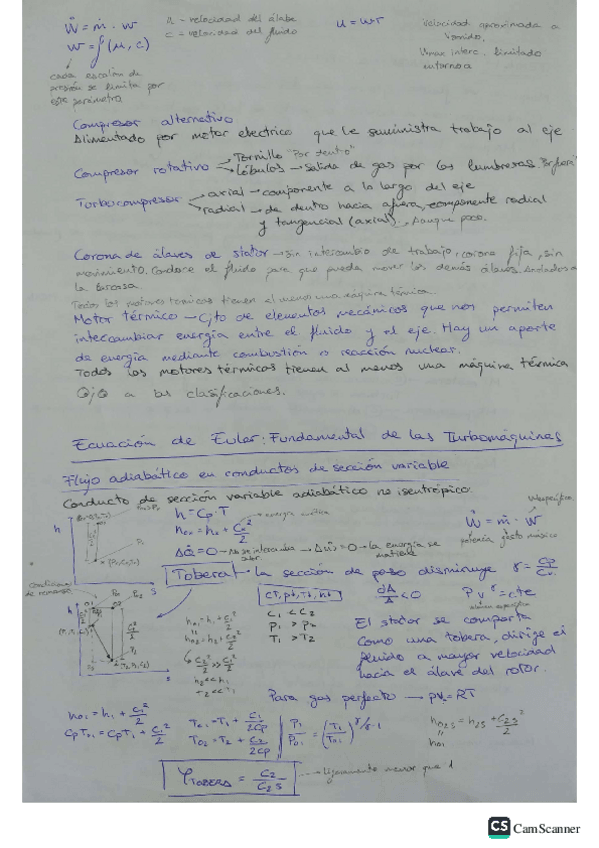 Ẇ = ṁ · w
u - velocidad del álabe
u = wr
Velocidad aproximada a
sonido.
w = f(u, c)
c - velocidad del fluido
Umax interc. limitado
cada escalón de
presión se limita por
este parámetro
Compresor alternativo
Alimentado por motor electrico que le suministra trabajo al eje
Compresor rotativo
Tornillo "Por dentro"
Lóbulos → Salida de gas por las lumbreras.
Turbocompresor
axial → componente a lo largo del eje
radial → de dentro hacia afuera, componente radial
y tangencial (axial), aunque poco.
Corona de álaves de stator → sin intercambio de trabajo, corona fija, sin
movimiento. Conduce el fluido para que pueda mover los demás álaves. Anclados a
la carcasa.
Todos los motores termicos tienen al menos una máquina térmica.
Motor térmico → Cjto de elementos mecánicos que nos permiten
intercambiar energía entre el fluido y el eje. Hay un aporte
de energía mediante combustión o reacción nuclear.
Todos los motores térmicos tienen al menos una máquina térmica
Ojo a las clasificaciones.
Ecuación de Euler: Fundamental de las Turbomáquinas
Flujo adiabático en conductos de sección variable
Conducto de sección variable adiabático no isentrópico.
h
s
h = Cp · T
h01 = h1 + C1²/2
energía cinética
Ẇ = ṁ · w
potencia gasto másico
ΔQ̇ = 0
ΔẆ = 0 → la energía se
mantiene
Tobera: la sección de paso disminuye
γ = Cp/Cv
dA/A < 0
P v^γ = cte
C1 < C2
P1 > P2
T1 > T2
El stator se comporta
como una tobera, dirige el
fluido a mayor velocidad
hacia el álave del rotor.
h
s
h01 = h1 + C1²/2
h02 = h2 + C2²/2
h2 << h1
T2 << T1
Para gas perfecto → pv = RT
h01 = h1 + C1²/2
CpT01 = CpT1 + C1²/2
T01 = T1 + C1²/2Cp
T02 = T2 + C2²/2Cp
P1/P01 = (T1/T01)^γ/γ-1
h02s = h2s + C2s²/2
h01
φTOBERA = C2/C2s
Ligeramente menor que 1
CS CamScanner